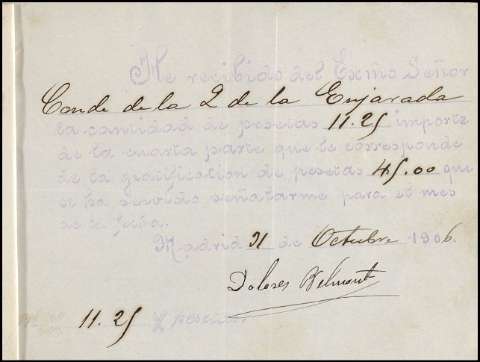 He recibido del Exmo Señor
Conde de la 2 de la Enjarada
la cantidad de pesetas 11.25 importe
de la cuarta parte que le corresponde
de la gratificacion de pesetas 45.00 que
se ha servido señalarme para el mes
de la fecha.
Madrid 31 de Octubre 1906.
Dolores Belmonte
11.25 pesetas